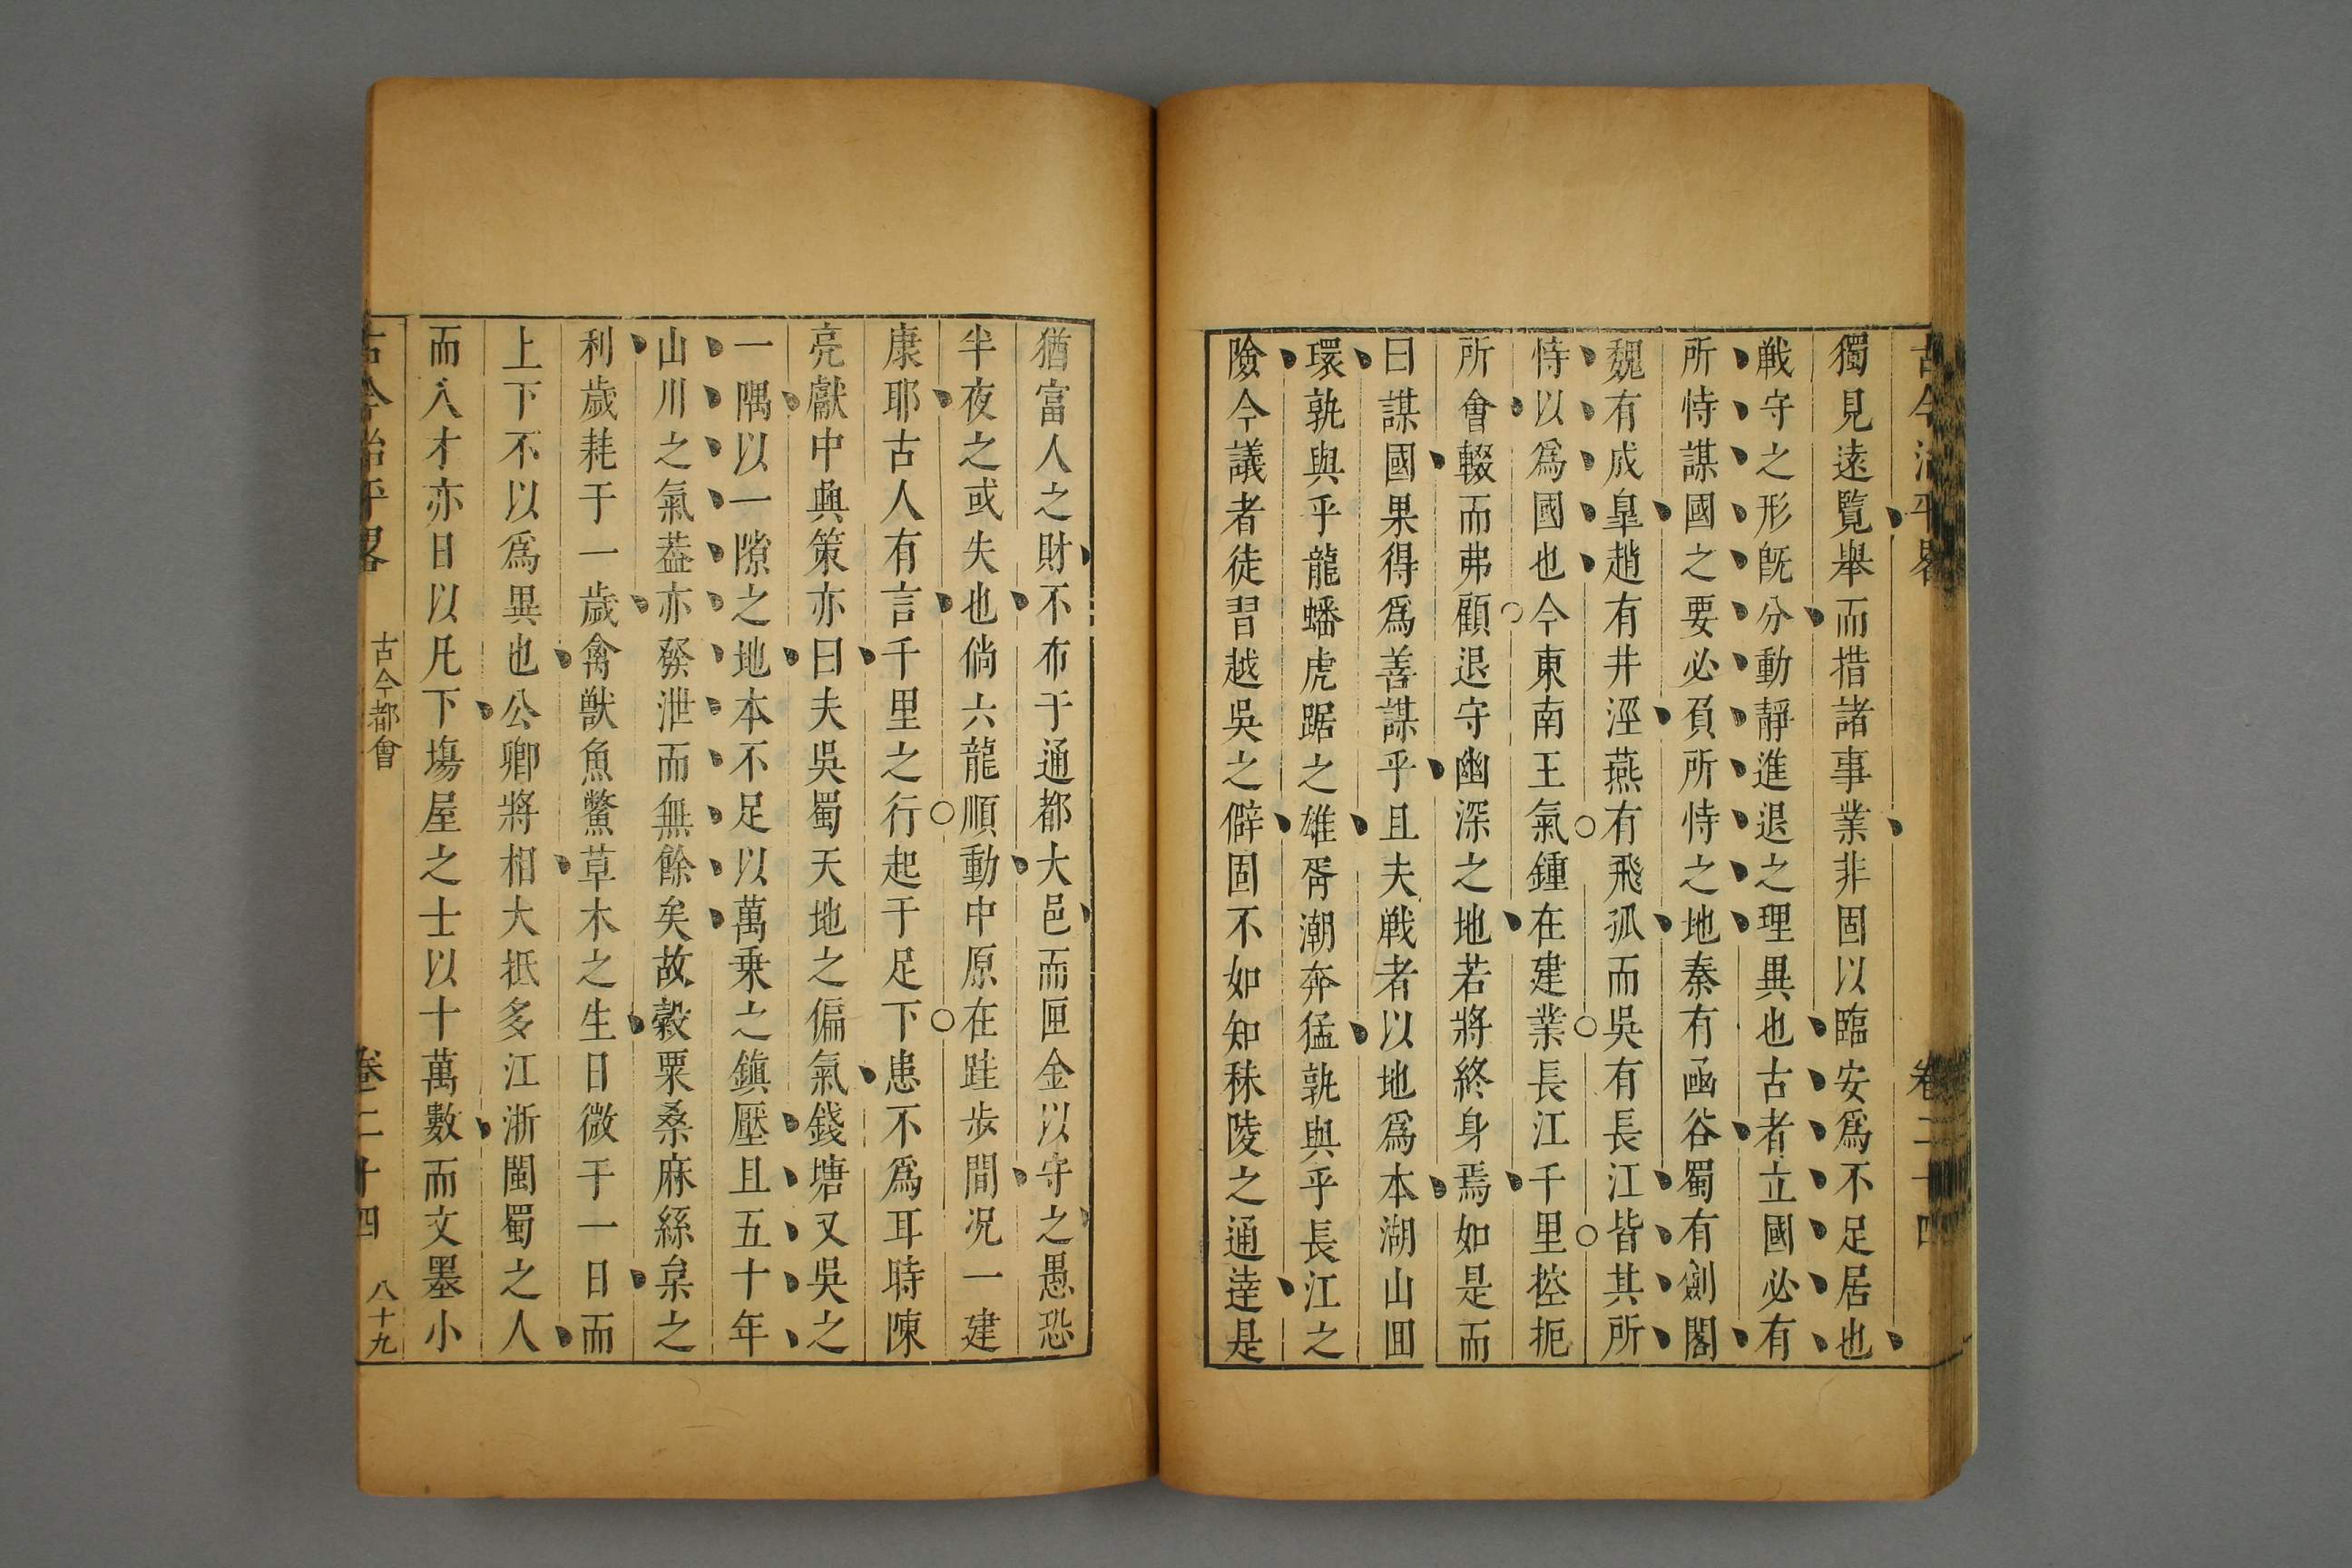 古今治平畧 卷二十四
獨見遠覽舉而措諸事業非固以臨安爲不足居也
戰守之形旣分動靜進退之理異也古者立國必有
所恃謀國之要必頁所恃之地秦有函谷蜀有劍閣
魏有成臯趙有井涇燕有飛孤而吳有長江皆其所
恃以爲國也今東南王氣鍾在建業長江千里控扼
所會輟而弗顧退守幽深之地若將終身焉如是而
曰謀國果得爲善謀乎且夫戰者以地爲本湖山囬
環孰與乎龍蟠虎踞之雄胥潮奔猛孰與乎長江之
險今議者徒習越吳之僻固不如知秣陵之通逹是
猶富人之財不布于通都大邑而匣金以守之愚恐
半夜之或失也倘六龍順動中原在跬步間况一建
康耶古人有言千里之行起于足下患不爲耳時陳
亮獻中興策亦曰夫吳蜀天地之偏氣錢塘又吳之
一隅以一隙之地本不足以萬乗之鎮壓且五十年
山川之氣葢亦發泄而無餘矣故穀粟桑麻絲枲之
利歲耗于一歲禽獸魚鱉草木之生日微于一日而
上下不以爲異也公卿將相大抵多江浙閩蜀之人
而人才亦日以凡下塲屋之士以十萬數而文墨小
古今治平畧 古今都會 卷二十四 八十九